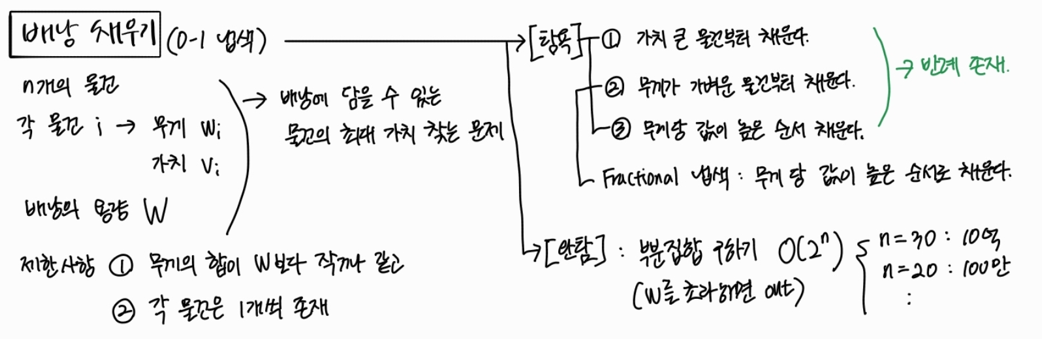 배낭 채우기 (0-1 냅색)
n개의 물건
각 물건 i → 무게 wi
가치 vi
배낭의 용량 W
→ 배낭에 담을 수 있는
물건의 최대 가치 찾는 문제
제한사항 ① 무게의 합이 W보다 작거나 같고
② 각 물건은 1개씩 존재
→ [탐욕] ① 가치 큰 물건부터 채운다.
② 무게가 가벼운 물건부터 채운다.
③ 무게당 값이 높은 순서 채운다.
→ 반례 존재.
Fractional 냅색 : 무게 당 값이 높은 순서로 채운다.
→ [완탐] : 부분집합 구하기 O(2ⁿ)
(W를 초과하면 out)
n=30 : 10억
n=20 : 100만
: